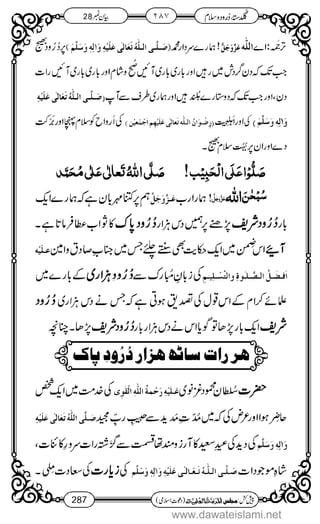 گلدستۂ دُرود و سلام ۲۸۷ بیان نمبر 28
ترجمہ: اے اللہ عَزَّوَجَلَّ! ہمارے سردار محمد (صَلَّی اللہُ تَعَالٰی عَلَیْہِ وَاٰلِہٖ وَسَلَّمَ) پر دُرُود بھیج
جب تک کہ دن گردش میں رہیں اور باری باری آئیں صبح و شام اور باری باری آئیں رات
دن، اور جب تک کہ دو ستارے بلند ہیں اور ہماری طرف سے آپ (صَلَّی اللہُ تَعَالٰی عَلَیْہِ
وَاٰلِہٖ وَسَلَّمَ) کی اور اہلِبیت (رِضْوَانُ اللہِ تَعَالٰی عَلَیْہِمْ اَجْمَعِیْن) کی ارواح کو سلام پہنچا اور برکت
دے اور ان پر بہت سلام بھیج۔
صَلُّوْا عَلَی الْحَبِیْب! صَلَّی اللہُ تَعَالٰی عَلٰی مُحَمَّد
سُبْحٰنَ اللہ! ہمارا رب عَزَّوَجَلَّ ہم پر کتنا مہربان ہے کہ ہمارے ایک
بار دُرُود شریف پڑھنے پر ہمیں دس ہزار دُرُودِ پاک کا ثواب عطا فرماتا ہے۔
آیئے اس ضمن میں ایک حکایت بھی سنتے چلئے جس میں جنابِ صادق و امین عَلَیْہِ
اَفْضَلُ الصَّلٰوۃِ وَالتَّسْلِیْم کی زبانِ مُبارک سے دُرُودِ ہزاری کے بارے میں
علمائے کرام کے اس قول کی تصدیق ہوتی ہے کہ جس نے دس ہزاری دُرُود
شریف ایک بار پڑھا تو گویا اس نے دس ہزار بار دُرُود شریف پڑھا۔ چنانچہ
ہر رات ساٹھ ہزار دُرُودِ پاک
حضرت سُلطان محمود غزنوی عَلَیْہِ رَحْمَۃُ اللہِ الْقَوِی کی خدمت میں ایک شخص
حاضر ہوا اور عرض کی کہ میں مُدّتِ مَدید سے حبیبِ ربِّ مجید صَلَّی اللہُ تَعَالٰی عَلَیْہِ
وَاٰلِہٖ وَسَلَّمَ کی دید کی عیدِ سعید کا آرزومند تھا قسمت سے گُزشتہ رات سرورِ کائنات،
شاہِ موجودات صَلَّی اللہُ تَعَالٰی عَلَیْہِ وَاٰلِہٖ وَسَلَّمَ کی زِیارت کی سعادت ملی۔
287
www.dawateislami.net